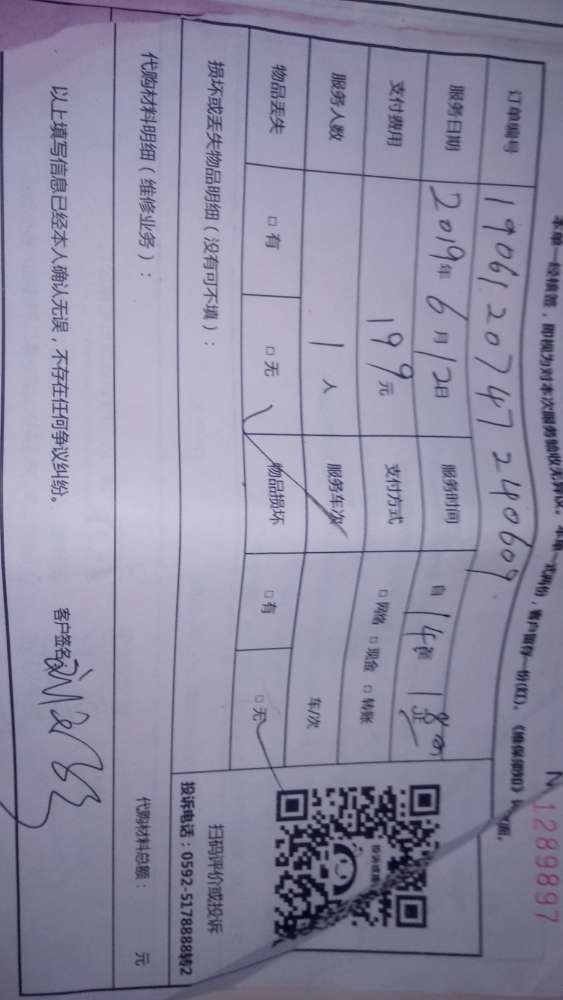 本单一经核签，即视为对本次服务验收无异议。本单一式两份，客户留存一份(红)，《维保须知》
N 1289897
订单编号 19061 20747 240609
服务日期 2019年6月12日 服务时间 自 14 至 18
支付费用 199元 支付方式 □网络 □现金 □转账
服务人数 1人 服务车次 车/次
物品丢失 □有 □无 物品损坏 □有 □无
损坏或丢失物品明细（没有可不填）：
投诉或
扫码评价或投诉
投诉电话：0592-5178888转2
代购材料明细（维修业务）： 代购材料总额： 元
以上填写信息已经本人确认无误，不存在任何争议纠纷。 客户签名